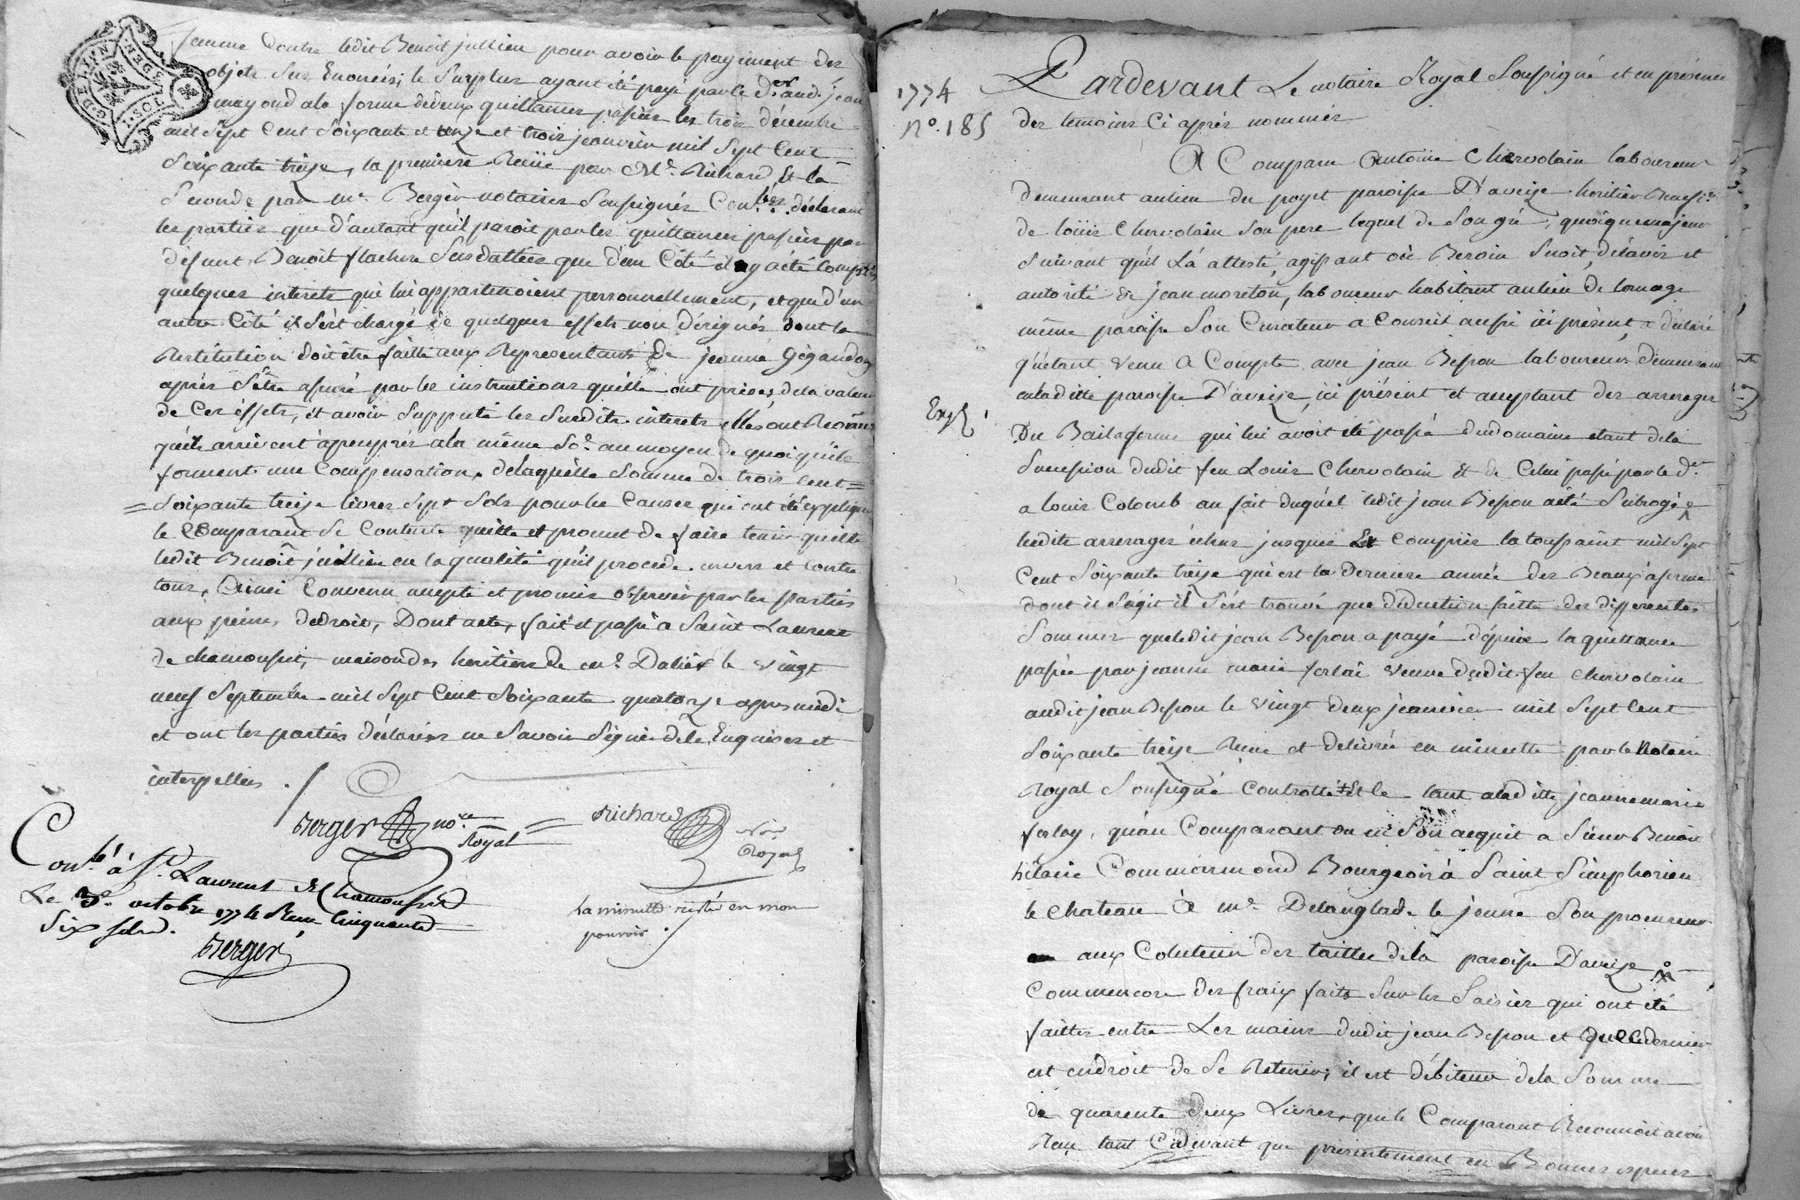 femme contre ledit Benoit jullien pour avoir le payement des
objets sus Enoncés; le surplus ayant été payé par le d. and. jean
mayond a la forme de deux quittances passées les trois décembre
mil sept cent soixante et onze et trois janvier mil sept cent
soixante treize, la premiere Reçüe par Me. Richard Et la
seconde par me. Berger notaires soussignés Conlées. déclarant
les parties que d'autant qu'il paroit par les quittances passées par
défunt Benoit flachere susdattées que d'un Côté il ay été compris
quelques interets qui lui appartenoient personnellement, et que d'un
autre Côté il s'est chargé de quelques effets non désignés dont la
Restitution doit être faitte aux Representants de jeanne gégandon
après s'être assuré par les instructions qu'elles ont prises de la valeur
de Ces effets, et avoir supputé les susdits interets elles ont Reconnu
qu'ils arrivent à peu près a la même Se. au moyen de quoi qu'ils
forment une Compensation, de laquelle somme de trois cent
= soixante treize livres sept sols pour les Causes qui ont été expliquées
le Comparant se Contente quitte et promet de faire tenir quitte
ledit Benoit jullien en la qualité qu'il procede envers et contre
tous, Ainsi Convenu accepté et promis observer par les parties
aux peines de droit, Dont acte, fait et passé a Saint Laurent
de chamousset, maison des héritiers de me. Dalier le vingt
neuf septembre mil sept cent soixante quatorze après midi
et ont les parties déclarées ne savoir signer de ce Enquises et
interpellées.
Berger nore. Royal = Richard Nore. Royal
Conlé. à St. Laurent de Chamousset
Le 3e. octobre 1774 Reçu Cinquante
Six sols d.
Berger
La minutte restée en mon
pouvoir.
1774
No. 185
Pardevant Le notaire Royal Soussigné et en présence
des temoins Ci après nommés
A Comparu Antoine Chervolain laboureur
demeurant au lieu du poyet paroisse D'aveize héritier Benef.re
de loüis Chervolain son pere lequel de son gré, quoique majeur
suivant qu'il L'a attesté, agissant où Besoin seroit, de l'avis et
autorité de jean moreton, laboureur habitant au lieu de lornage
même paroisse Son Curateur a Conseil aussi ici présent, a déclaré
qu'étant venu A Compte avec jean Besson laboureur demeurant
en la ditte paroisse D'aveize, ici présent et acceptant des arrerages
Expé.
Du Bail a ferme qui lui avoit été passé du domaine étant de la
succession dudit feu Louis Chervolain & de Celui passé par le d.
a louis Colomb au fait duquel ledit jean Besson a été subrogé
lesdits arrerages échus jusques Et compris la toussaint mil sept
Cent soixante treize qui est la derniere année des Beaux a ferme
dont il s'agit il s'est trouvé que déduction faitte des differentes
sommes que ledit jean Besson a payé depuis la quittance
passée par jeanne marie ferlai veuve dudit feu chervolain
audit jean Besson le vingt deux janvier mil sept cent
soixante treize Reçue et delivrée en minutte par le Notaire
Royal soussigné controllée Et le tant a la ditte jeanne marie
ferlay, qu'au Comparant ou en son acquit a sieur Benoit
hilaire Commarmond Bourgeois à Saint Simphorien
le chateau à me. Delanglade le jeune son procureur
aux Colecteurs des tailles de la paroisse D'aveize
Comme encore des fraix faits sur les saisies qui ont été
faittes entre Les mains dudit jean Besson et que ce dernier
est en droit de se Retenir; il est débiteur de la somme
de quarente deux Livres, que le Comparant Reconnoit avoir
Reçu tant Cidevant que présentement en Bonnes especes